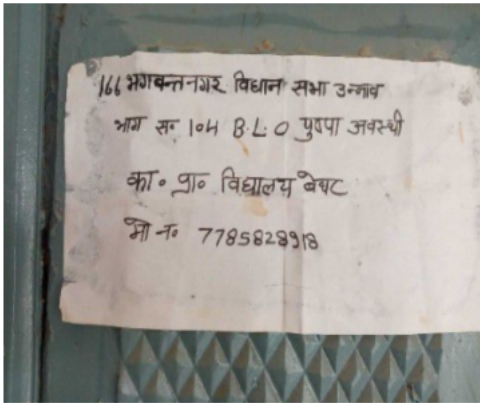 166 भगवन्तनगर विधान सभा उन्नाव
भाग स॰ 104 B.L.O पुष्पा अवस्थी
का॰ प्रा॰ विद्यालय बेथर
मो न॰ 7785828918